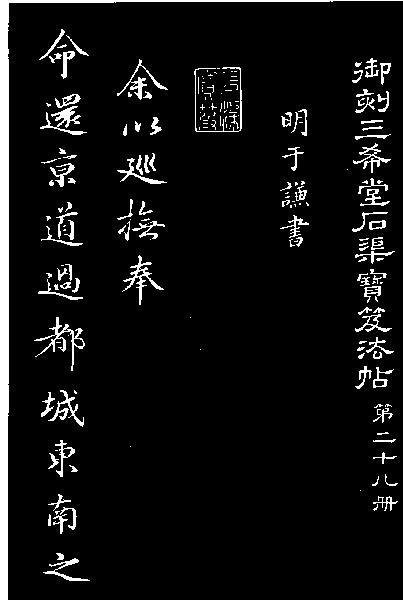 御刻三希堂石渠寶笈法帖 第二十八册
明于謙書
余以巡撫奉
命還京道過都城東南之